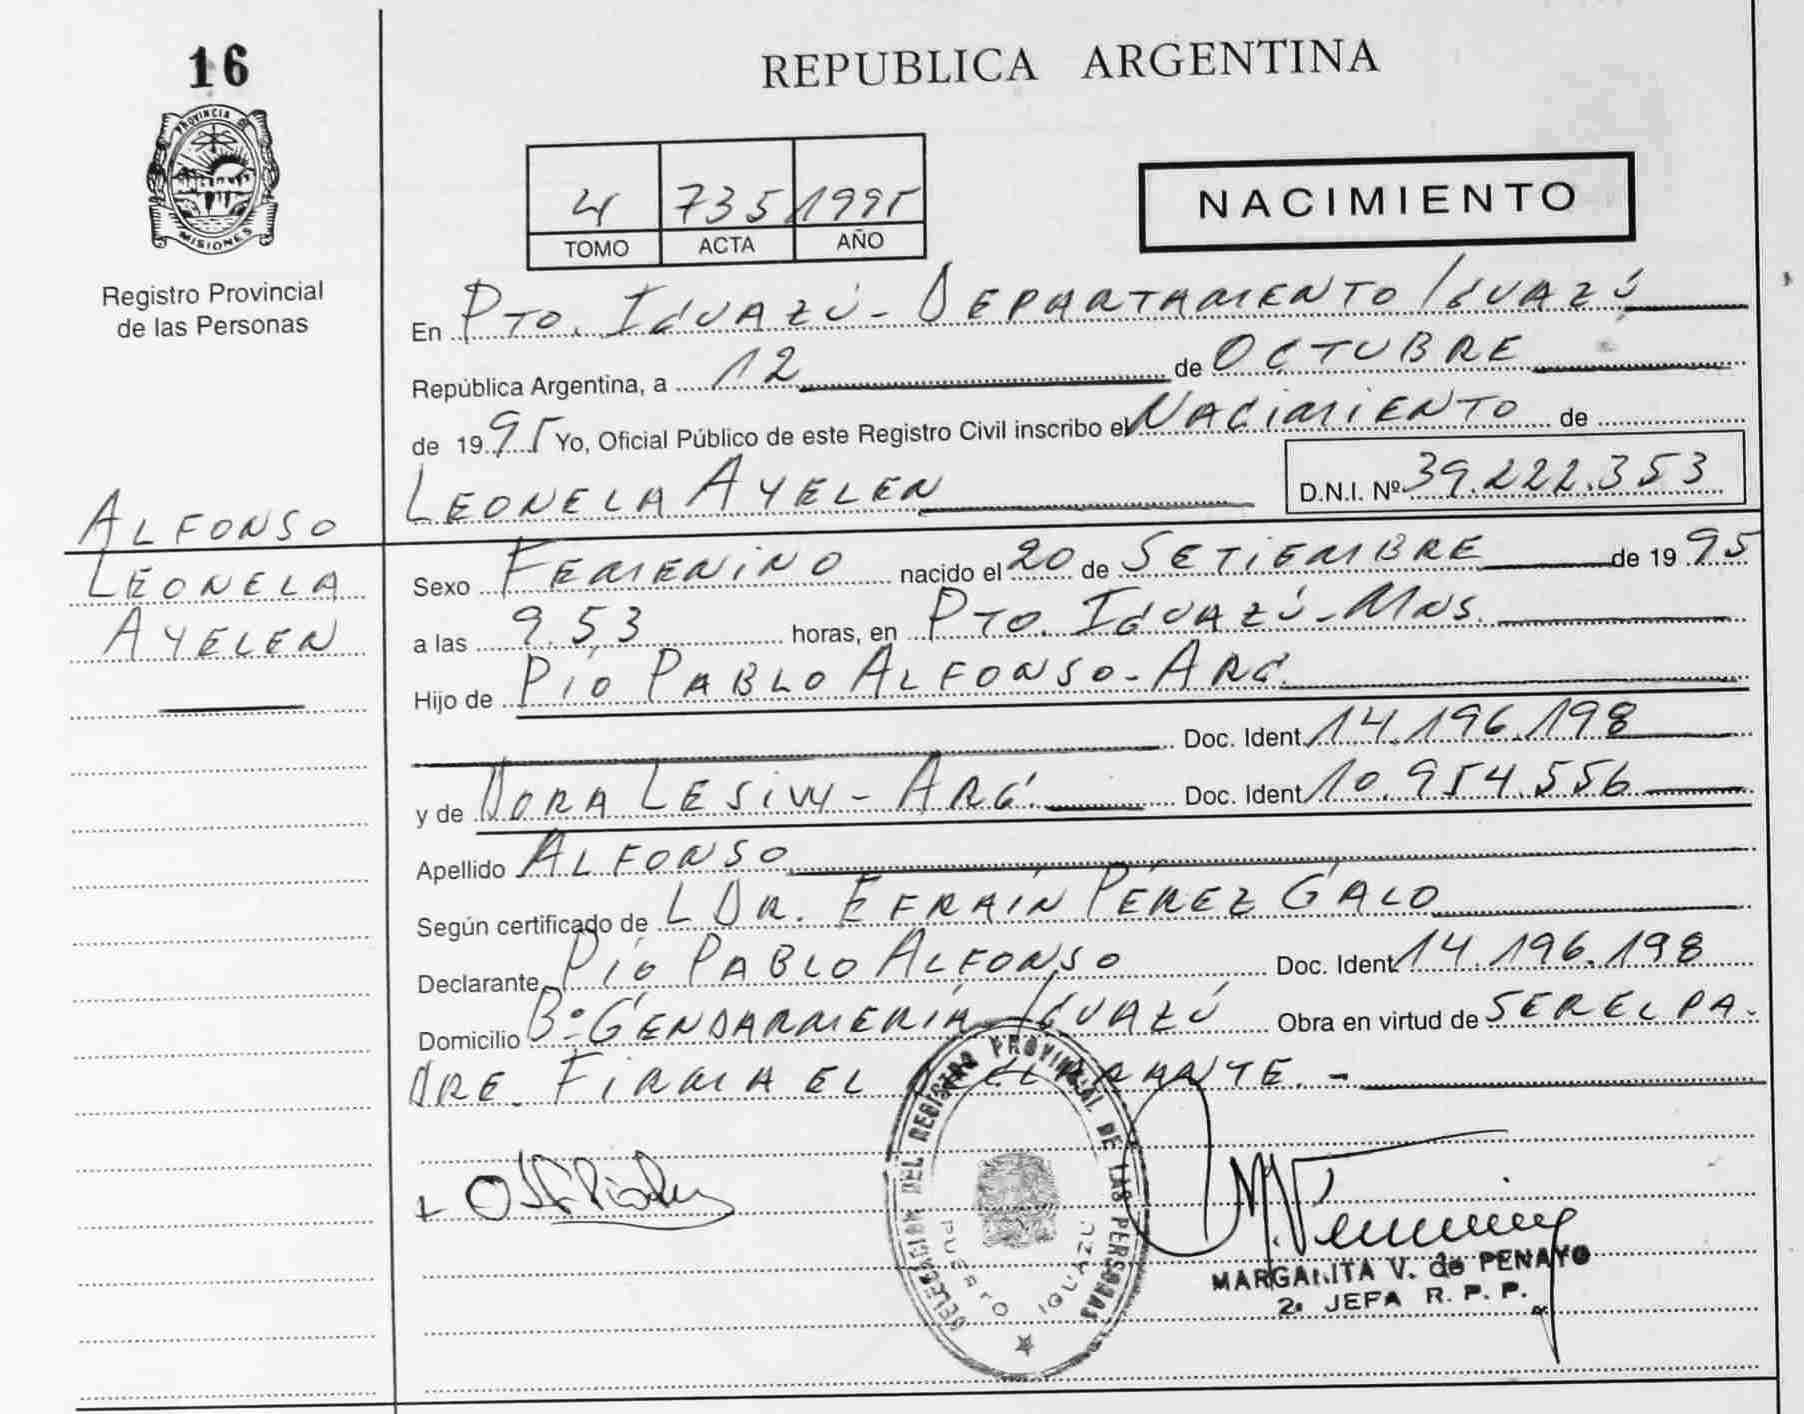 16
PROVINCIA DE
MISIONES
Registro Provincial
de las Personas
REPUBLICA ARGENTINA
4 735 1995
TOMO ACTA AÑO
NACIMIENTO
En PTO. IGUAZÚ - DEPARTAMENTO IGUAZÚ
República Argentina, a 12 de OCTUBRE
de 1995 Yo, Oficial Público de este Registro Civil inscribo el NACIMIENTO de
LEONELA AYELEN D.N.I. Nº 39.222.353
ALFONSO
LEONELA
AYELEN
Sexo FEMENINO nacido el 20 de SETIEMBRE de 1995
a las 9.53 horas, en PTO. IGUAZÚ - MNS.
Hijo de PÍO PABLO ALFONSO - ARG.
Doc. Ident. 14.196.198
y de DORA LESIW - ARG. Doc. Ident. 10.954.556
Apellido ALFONSO
Según certificado de L DR. EFRAÍN PÉREZ GALO
Declarante PÍO PABLO ALFONSO Doc. Ident. 14.196.198
Domicilio Bº GENDARMERÍA IGUAZÚ Obra en virtud de SER EL PA-
DRE. FIRMA EL DECLARANTE. -
DELEGACION DEL REGISTRO PROVINCIAL DE LAS PERSONAS
PUERTO IGUAZU
MARGARITA V. de PENAYO
2ª JEFA R. P. P.